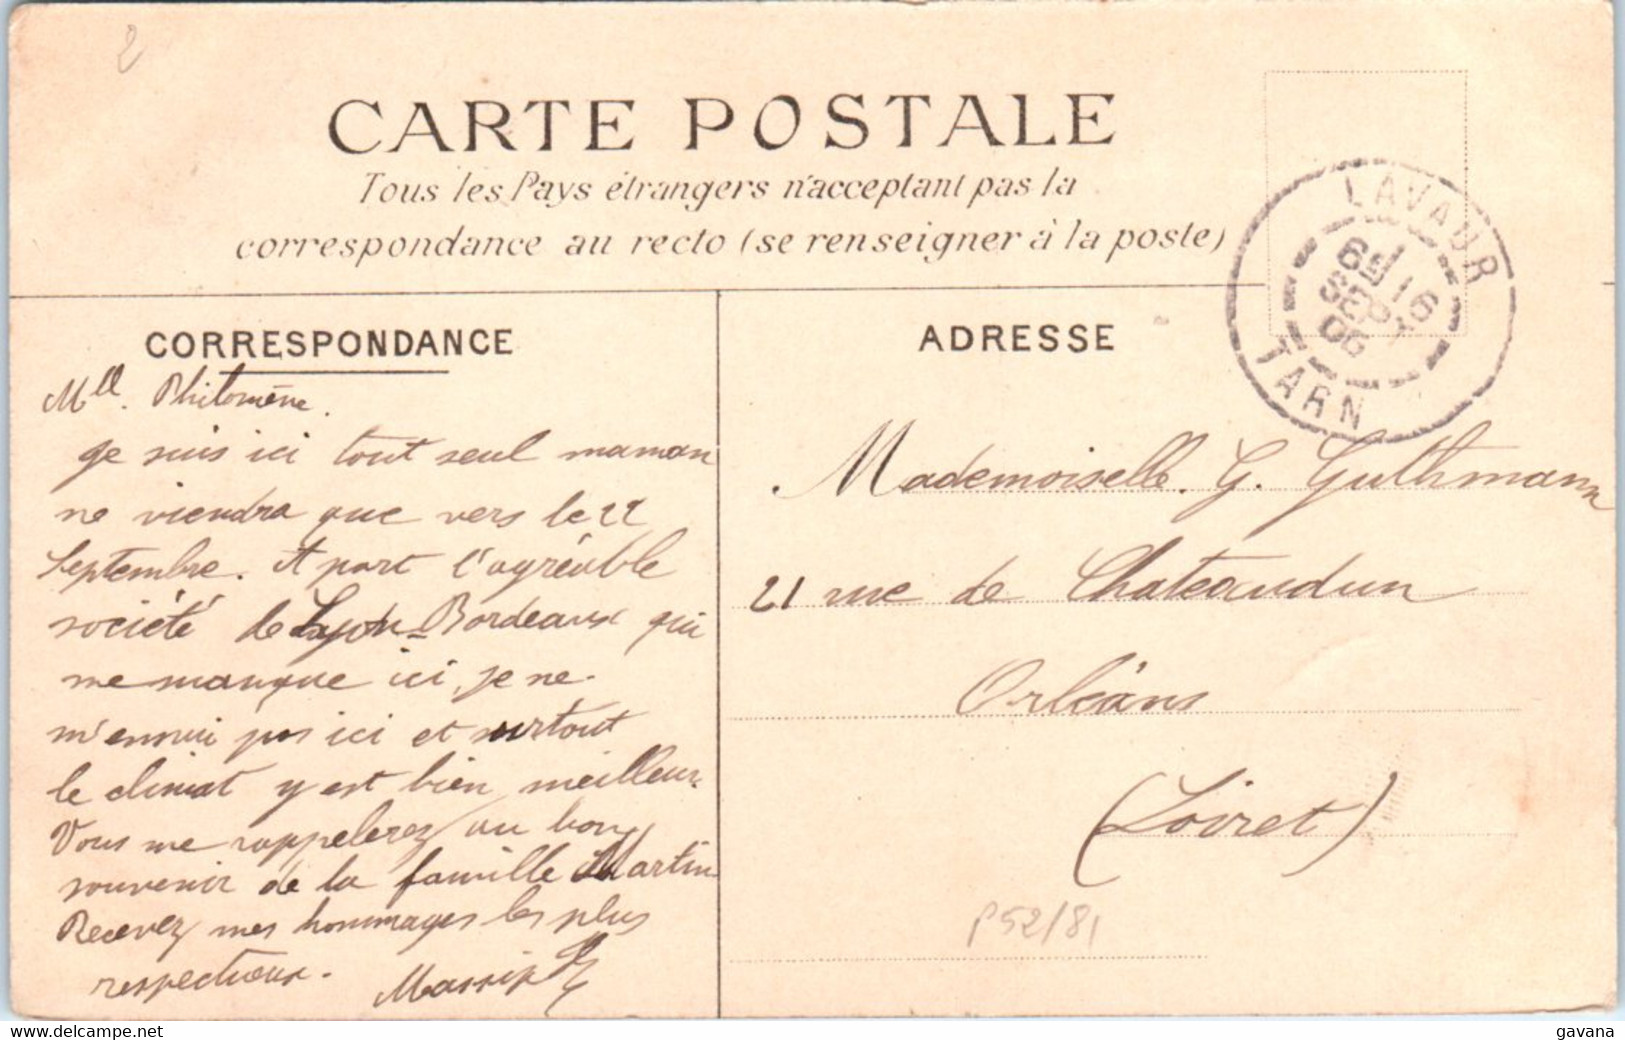 2
CARTE POSTALE
Tous les Pays étrangers n'acceptant pas la
correspondance au recto (se renseigner à la poste)
LAVAUR
6 SEP 06
TARN
CORRESPONDANCE
Mlle. Philomène.
Je suis ici tout seul maman
ne viendra que vers le 22
Septembre. A part l'agréable
société de Bordeaux qui
me manque ici, je ne
m'ennui pas ici et surtout
le climat y est bien meilleur.
Vous me rappelerez au bon
souvenir de la famille Martin
Recevez mes hommages les plus
respectueux.
ADRESSE
Mademoiselle. G. Guthmann
21 rue de Chateaudun
Orléans
(Loiret)
P52/81
www.delcampe.net
gavana